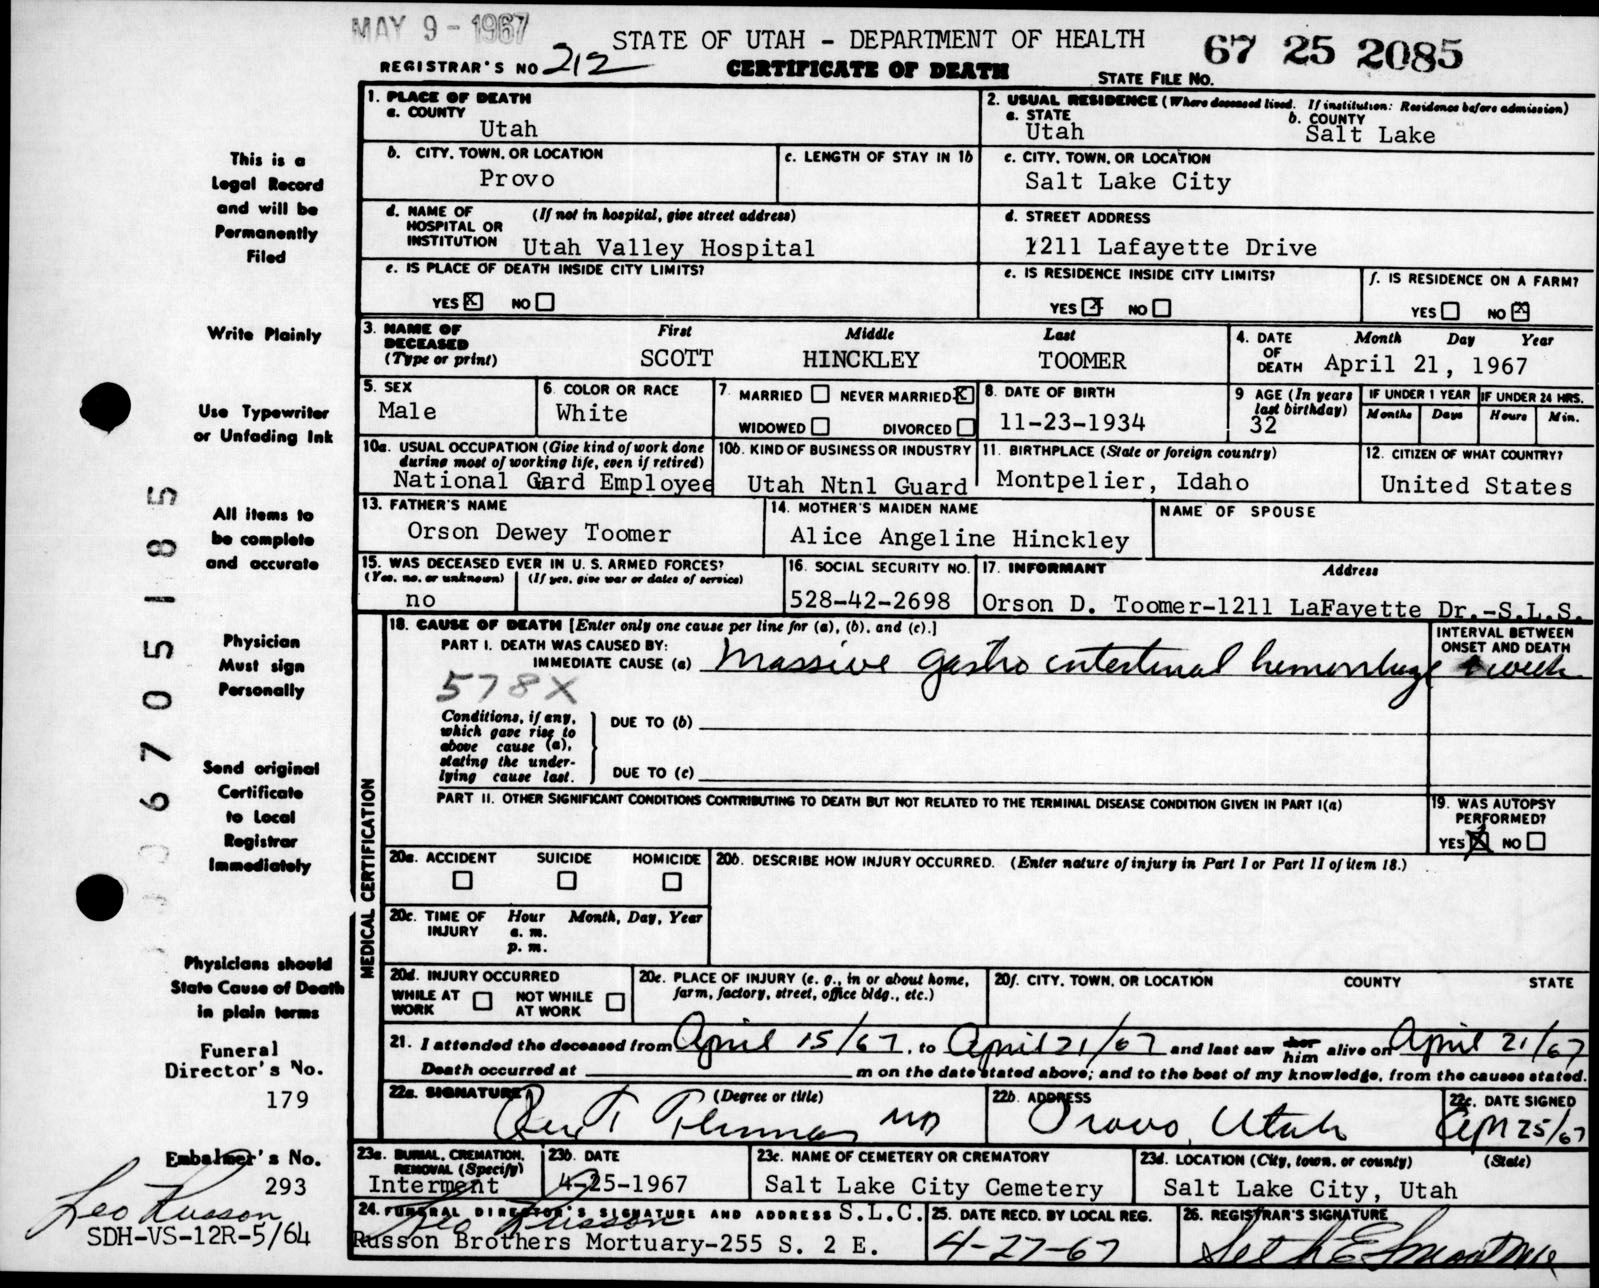 MAY 9 - 1967
STATE OF UTAH - DEPARTMENT OF HEALTH
67 25 2085
REGISTRAR'S NO 212
CERTIFICATE OF DEATH
STATE FILE NO.
1. PLACE OF DEATH
a. COUNTY
Utah
2. USUAL RESIDENCE (Where deceased lived. If institution: Residence before admission)
a. STATE
Utah
b. COUNTY
Salt Lake
b. CITY, TOWN, OR LOCATION
Provo
c. LENGTH OF STAY IN 1b
c. CITY, TOWN, OR LOCATION
Salt Lake City
d. NAME OF HOSPITAL OR INSTITUTION
(If not in hospital, give street address)
Utah Valley Hospital
d. STREET ADDRESS
1211 Lafayette Drive
e. IS PLACE OF DEATH INSIDE CITY LIMITS?
YES X NO
e. IS RESIDENCE INSIDE CITY LIMITS?
YES X NO
f. IS RESIDENCE ON A FARM?
YES NO X
3. NAME OF DECEASED
(Type or print)
First Middle Last
SCOTT HINCKLEY TOOMER
4. DATE OF DEATH
Month Day Year
April 21, 1967
5. SEX
Male
6. COLOR OR RACE
White
7. MARRIED NEVER MARRIED X
WIDOWED DIVORCED
8. DATE OF BIRTH
11-23-1934
9 AGE (In years last birthday)
32
IF UNDER 1 YEAR
Months Days
IF UNDER 24 HRS.
Hours Min.
10a. USUAL OCCUPATION (Give kind of work done during most of working life, even if retired)
National Guard Employee
10b. KIND OF BUSINESS OR INDUSTRY
Utah Ntnl Guard
11. BIRTHPLACE (State or foreign country)
Montpelier, Idaho
12. CITIZEN OF WHAT COUNTRY?
United States
13. FATHER'S NAME
Orson Dewey Toomer
14. MOTHER'S MAIDEN NAME
Alice Angeline Hinckley
NAME OF SPOUSE
15. WAS DECEASED EVER IN U. S. ARMED FORCES?
(Yes, no, or unknown) (If yes, give war or dates of service)
no
16. SOCIAL SECURITY NO.
528-42-2698
17. INFORMANT Address
Orson D. Toomer-1211 LaFayette Dr.-S.L.S.
MEDICAL CERTIFICATION
18. CAUSE OF DEATH [Enter only one cause per line for (a), (b), and (c).]
PART I. DEATH WAS CAUSED BY:
IMMEDIATE CAUSE (a) Massive gastro intestinal hemorrhage
INTERVAL BETWEEN ONSET AND DEATH
1 week
578X
Conditions, if any, which gave rise to above cause (a), stating the underlying cause last.
DUE TO (b)
DUE TO (c)
PART II. OTHER SIGNIFICANT CONDITIONS CONTRIBUTING TO DEATH BUT NOT RELATED TO THE TERMINAL DISEASE CONDITION GIVEN IN PART I(a)
19. WAS AUTOPSY PERFORMED?
YES X NO
20a. ACCIDENT SUICIDE HOMICIDE
20b. DESCRIBE HOW INJURY OCCURRED. (Enter nature of injury in Part I or Part II of item 18.)
20c. TIME OF INJURY
Hour Month, Day, Year
a. m.
p. m.
20d. INJURY OCCURRED
WHILE AT WORK NOT WHILE AT WORK
20e. PLACE OF INJURY (e. g., in or about home, farm, factory, street, office bldg., etc.)
20f. CITY, TOWN, OR LOCATION COUNTY STATE
21. I attended the deceased from April 15/67, to April 21/67 and last saw her him alive on April 21/67
Death occurred at m on the date stated above; and to the best of my knowledge, from the causes stated.
22a. SIGNATURE (Degree or title)
MD
22b. ADDRESS
Provo, Utah
22c. DATE SIGNED
Apr 25/67
23a. BURIAL, CREMATION, REMOVAL (Specify)
Interment
23b. DATE
4-25-1967
23c. NAME OF CEMETERY OR CREMATORY
Salt Lake City Cemetery
23d. LOCATION (City, town, or county) (State)
Salt Lake City, Utah
24. FUNERAL DIRECTOR'S SIGNATURE AND ADDRESS S.L.C.
Leo Russon
Russon Brothers Mortuary-255 S. 2 E.
25. DATE RECD. BY LOCAL REG.
4-27-67
26. REGISTRAR'S SIGNATURE
This is a
Legal Record
and will be
Permanently
Filed
Write Plainly
Use Typewriter
or Unfading Ink
All items to
be complete
and accurate
Physician
Must sign
Personally
Send original
Certificate
to Local
Registrar
Immediately
Physicians should
State Cause of Death
in plain terms
Funeral
Director's No.
179
Embalmer's No.
293
Leo Russon
SDH-VS-12R-5/64
6705185